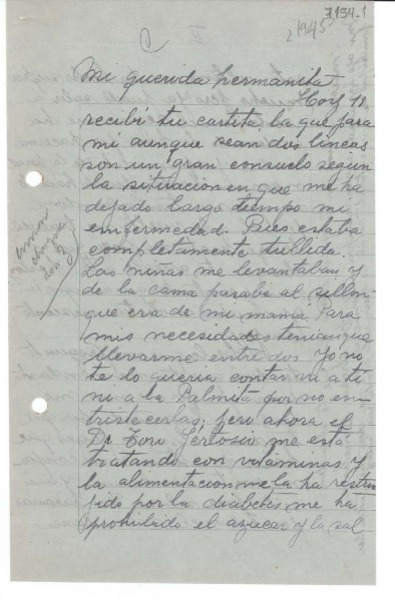 7154-1
¿1945?
Mi querida hermanita
Hoy 12
recibí tu cartita, la que para
mi aunque sean dos lineas
son un gran consuelo segun
la situacion en que me ha
dejado largo tiempo mi
enfermedad. Pues estaba
completamente tullida.
Las niñas me levantaban y
de la cama pasaba al sillon
que era de mi mamá. Para
mis necesidades tenian que
llevarme entre dos yo no
te lo queria contar ni a ti
ni a la Palmita por no en-
tristecerlas; pero ahora el
Dr Toro me está
tratando con vitaminas y
la alimentacion me la ha restrin
jido por la diabetis me ha
prohibido el azucar y la sal